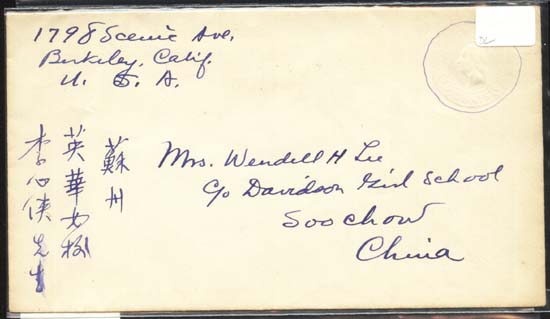 1798 Scenic Ave.
Berkeley, Calif.
U. S. A.
Mrs. Wendell H Lee
C/o Davidson Girl School
Soochow
China
蘇州
英華女校
李心俠先生